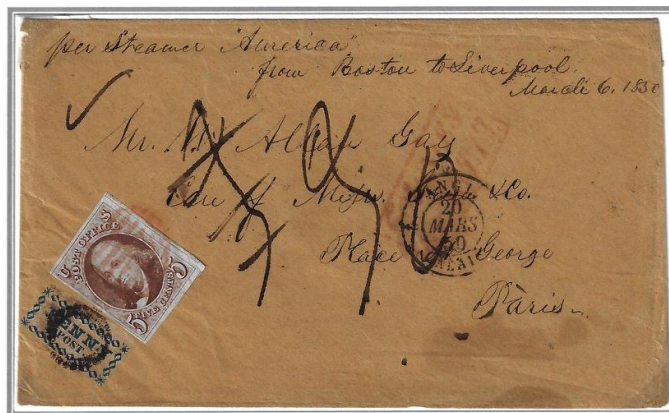 per Steamer "America"
from Boston to Liverpool
March 6. 1850
Mr. W. Allan Gay
Care of Messrs. & Co.
Place George
Paris
ANGL.
20
MARS
50
CALAIS
POST OFFICE
FIVE CENTS
5 5
PENNY
POST